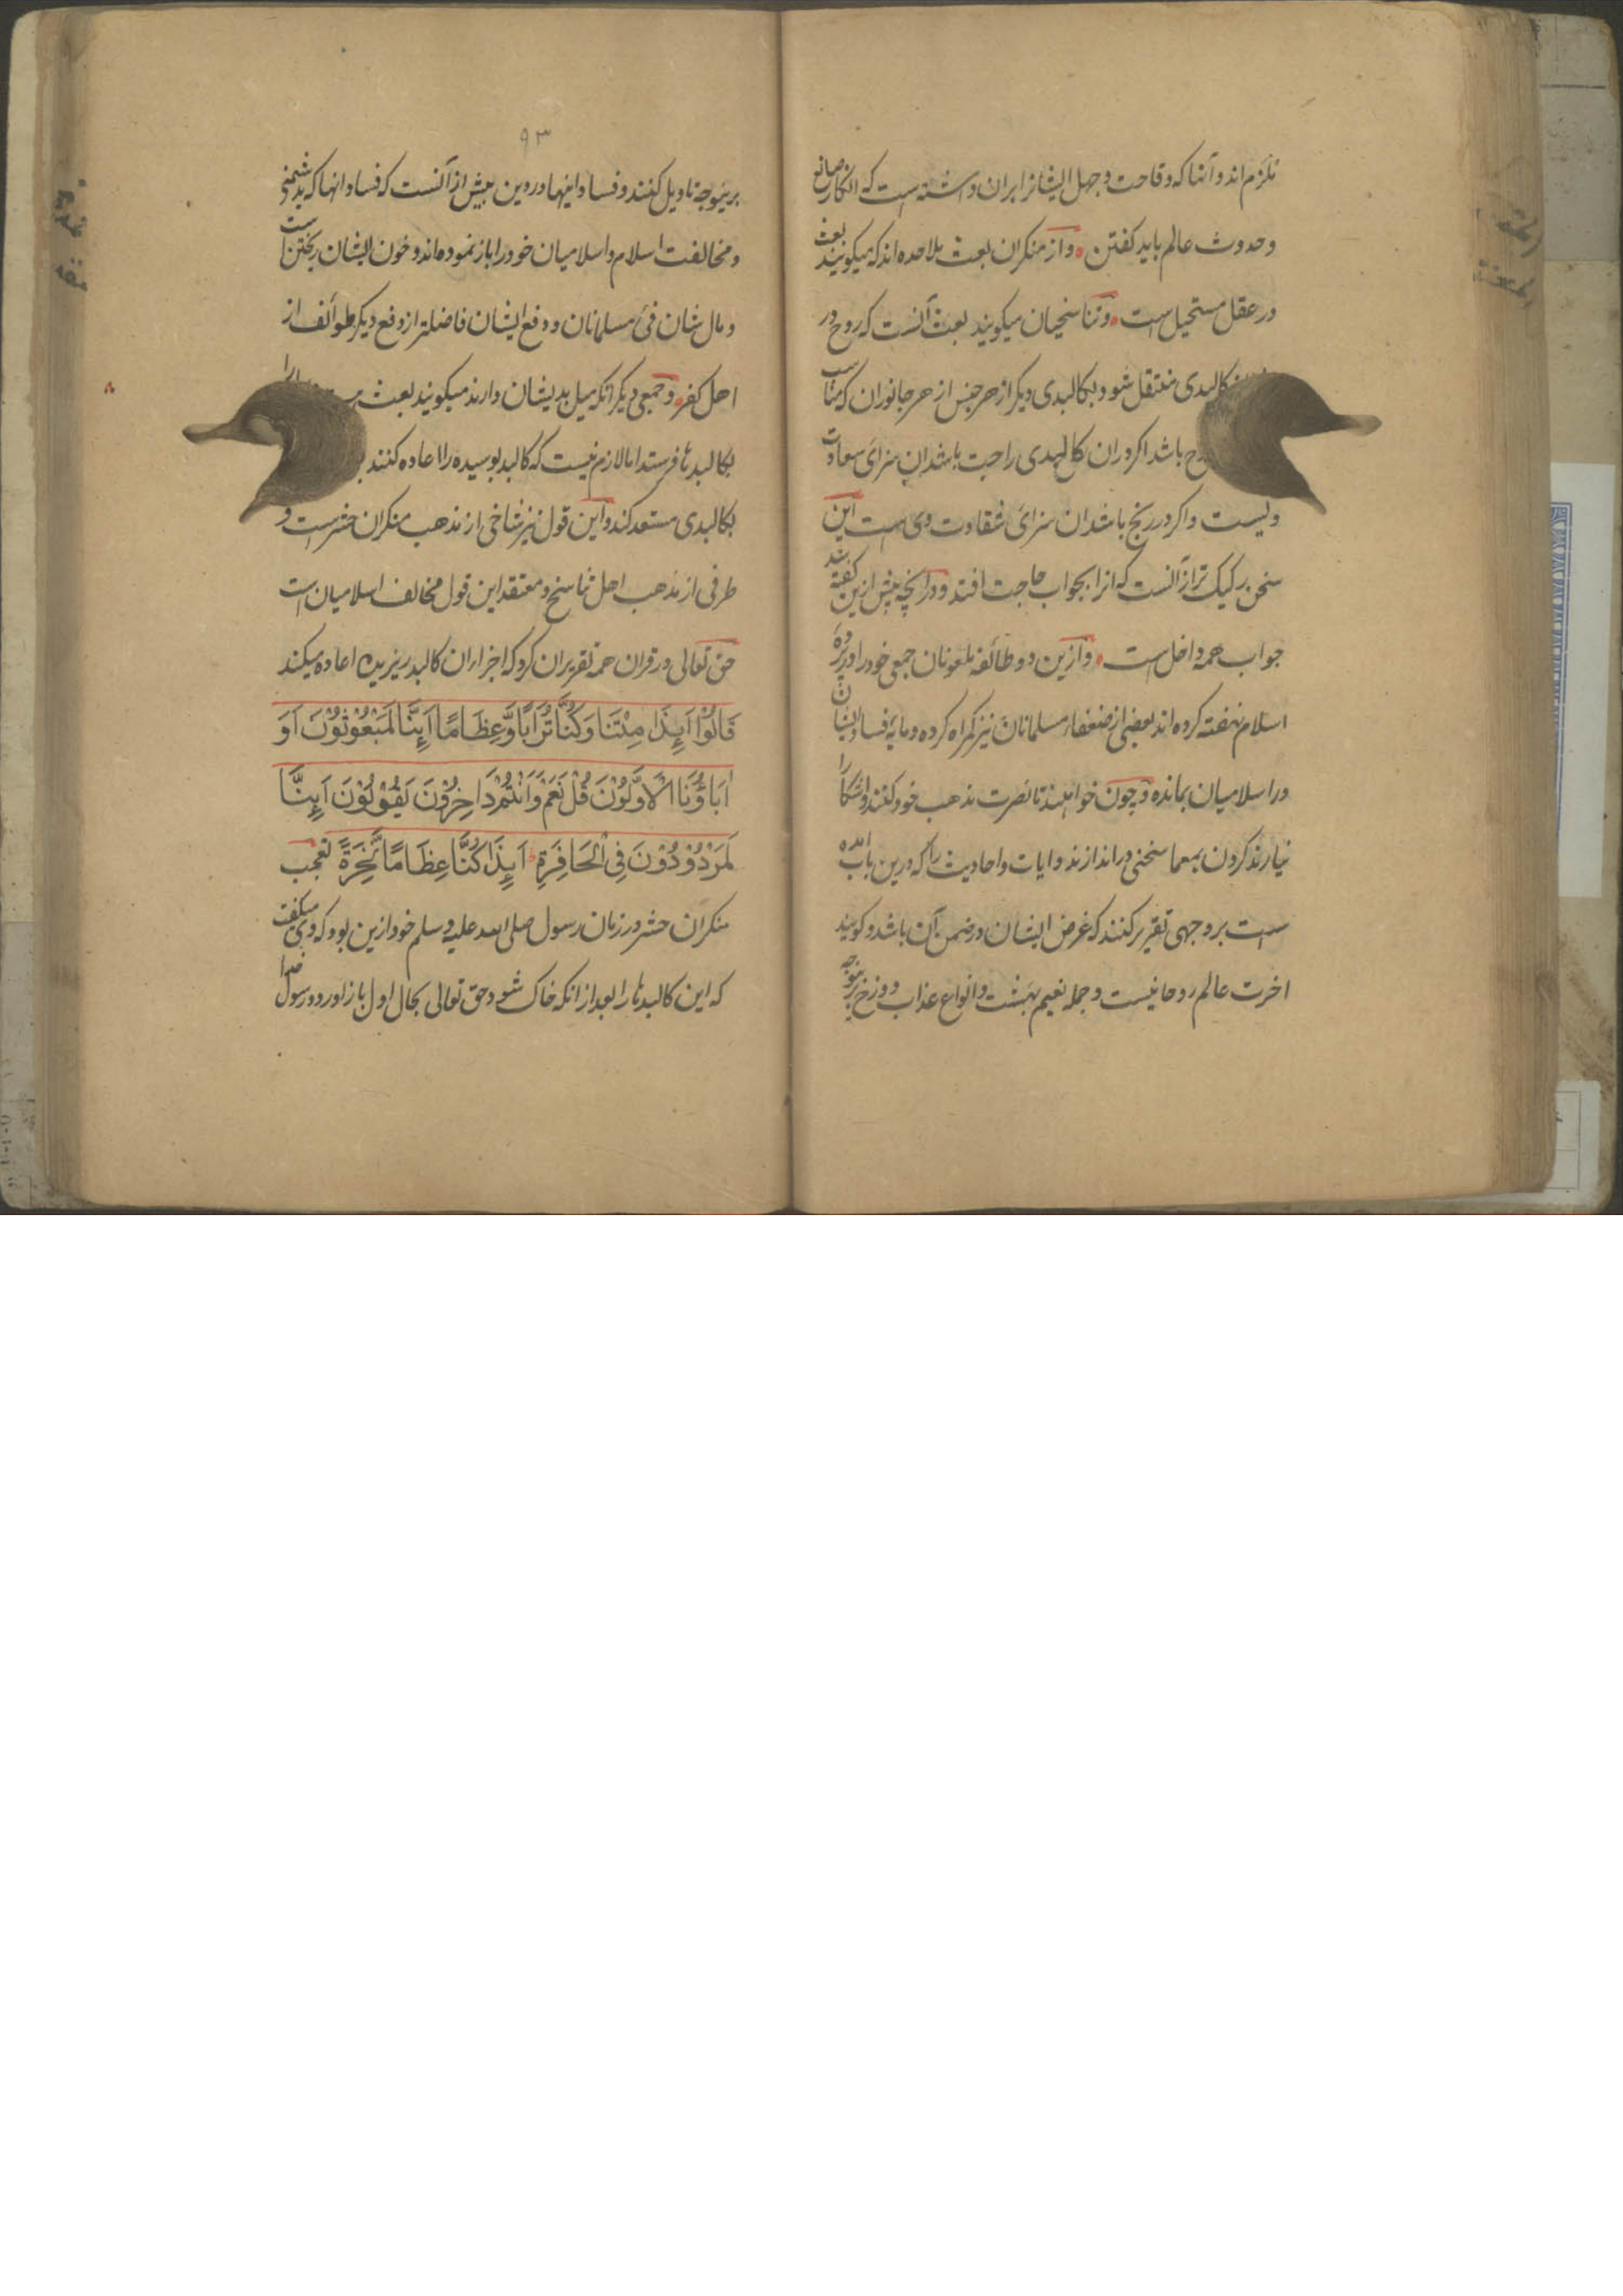 نکرم اند و آنها که وقاحت و جهل ایشانرا بران داشته است که انکار صانع
و حدوث عالم باید کفتن و از منکران بعث ملاحده اند که میکویند بعث
در عقل مستحیل است و تناسخیان میکویند بعث آنست که روح در
کالبدی منتقل شود بکالبدی دیکر از هر جنس از هر جانوران که مناسب
باشد اکر دران کالبدی راحت باشد ان سزای سعادت
ویست و اکر در رنج باشد ان سزای شقاوت وی است این
سخن رکیک تر از آنست که انرا بجواب حاجت افتد و در انچه پیش ازین کفته شد
جواب همه داخل است و ازین دو طائفه ملعونان جمعی خود را در پرده
اسلام نهفته کرده اند بعضی از ضعفاء مسلمانان نیز کمراه کرده و مایه فساد ایشان
در اسلامیان بمانده و چون خواهند تا نصرت مذهب خود کنند و اشکارا
نیارند کردن بمعما سخنی در اندازند و ایات و احادیث را که درین باب امده
است بر وجهی تقریر کنند که غرض ایشان در ضمن آن باشد و کویند
اخرت عالم روحانیست و جمله نعیم بهشت و انواع عذاب دوزخ برینوجه
۹۳
برینوجه تاویل کنند و فساد اینها در دین بیش از آنست که فساد انها که بدشمنی
و مخالفت اسلام و اسلامیان خود را باز نموده اند و خون ایشان ریختن است
و مال شان فیء مسلمانان و دفع ایشان فاضلتر از دفع دیکر طوائف از
اهل کفر و جمعی دیکر انکه میل بدیشان دارند میکویند بعث
بکالبدها فرستد اما لازم نیست که کالبد بوسیده را اعاده کنند
بکالبدی مستعد کند و این قول نیز شاخی از مذهب منکران حشر است و
طرفی از مذهب اهل تناسخ و معتقد این قول مخالف اسلامیان است
حق تعالی در قران همه تقریر ان کرد که اجزاء ان کالبد ریزیده اعاده میکند
قَالُوْا اَئِذَا مِتْنَا وَكُنَّا تُرَابًا وَّعِظَامًا اَئِنَّا لَمَبْعُوْثُوْنَ اَوَ
اٰبَاؤُنَا الْاَوَّلُوْنَ قُلْ نَعَمْ وَاَنْتُمْ دَاخِرُوْنَ يَقُوْلُوْنَ اَئِنَّا
لَمَرْدُوْدُوْنَ فِى الْحَافِرَةِ اَئِذَا كُنَّا عِظَامًا نَّخِرَةً تعجب
منکران حشر در زمان رسول صلی الله علیه و سلم خود ازین بود که وی میکفت
که این کالبدها را بعد از انکه خاک شود حق تعالی بحال اول باز اورد و رسول خدا